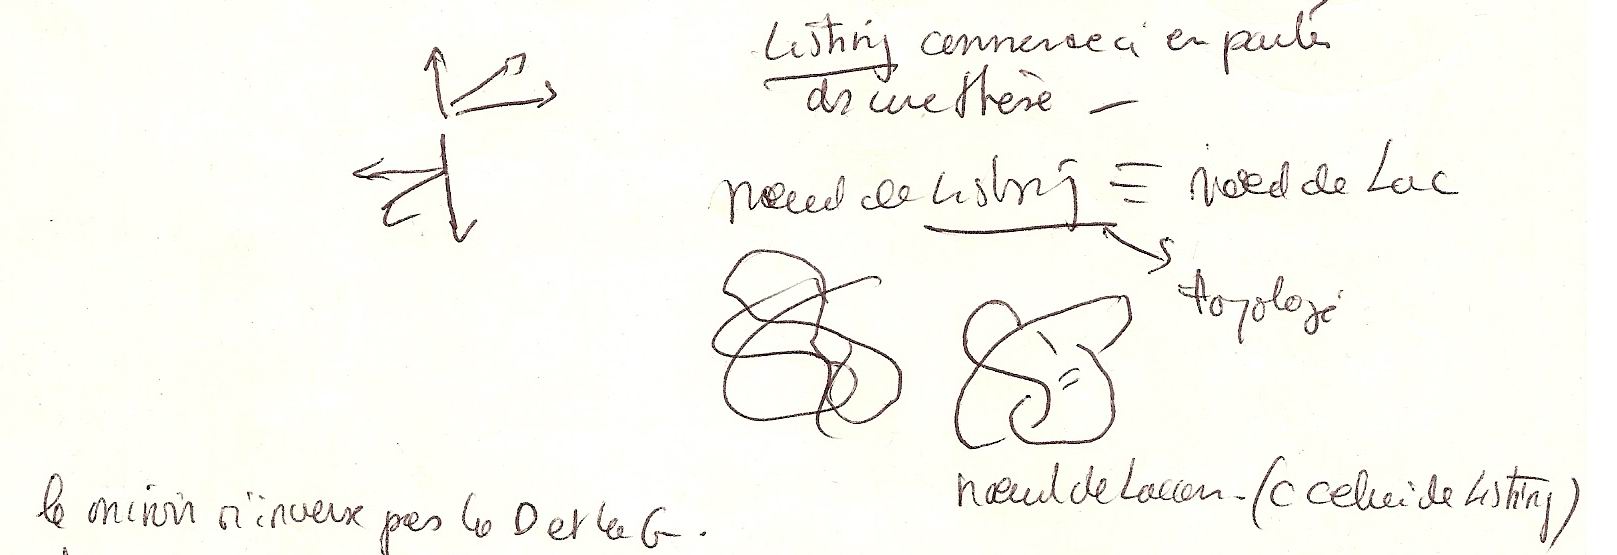 Listing commence ci en parler
ds une thèse —
nœud de Listing ≡ nœud de Lac
topologie
nœud de Lacan - (c celui de Listing)
le miroir n'inverse pas la D et la G -